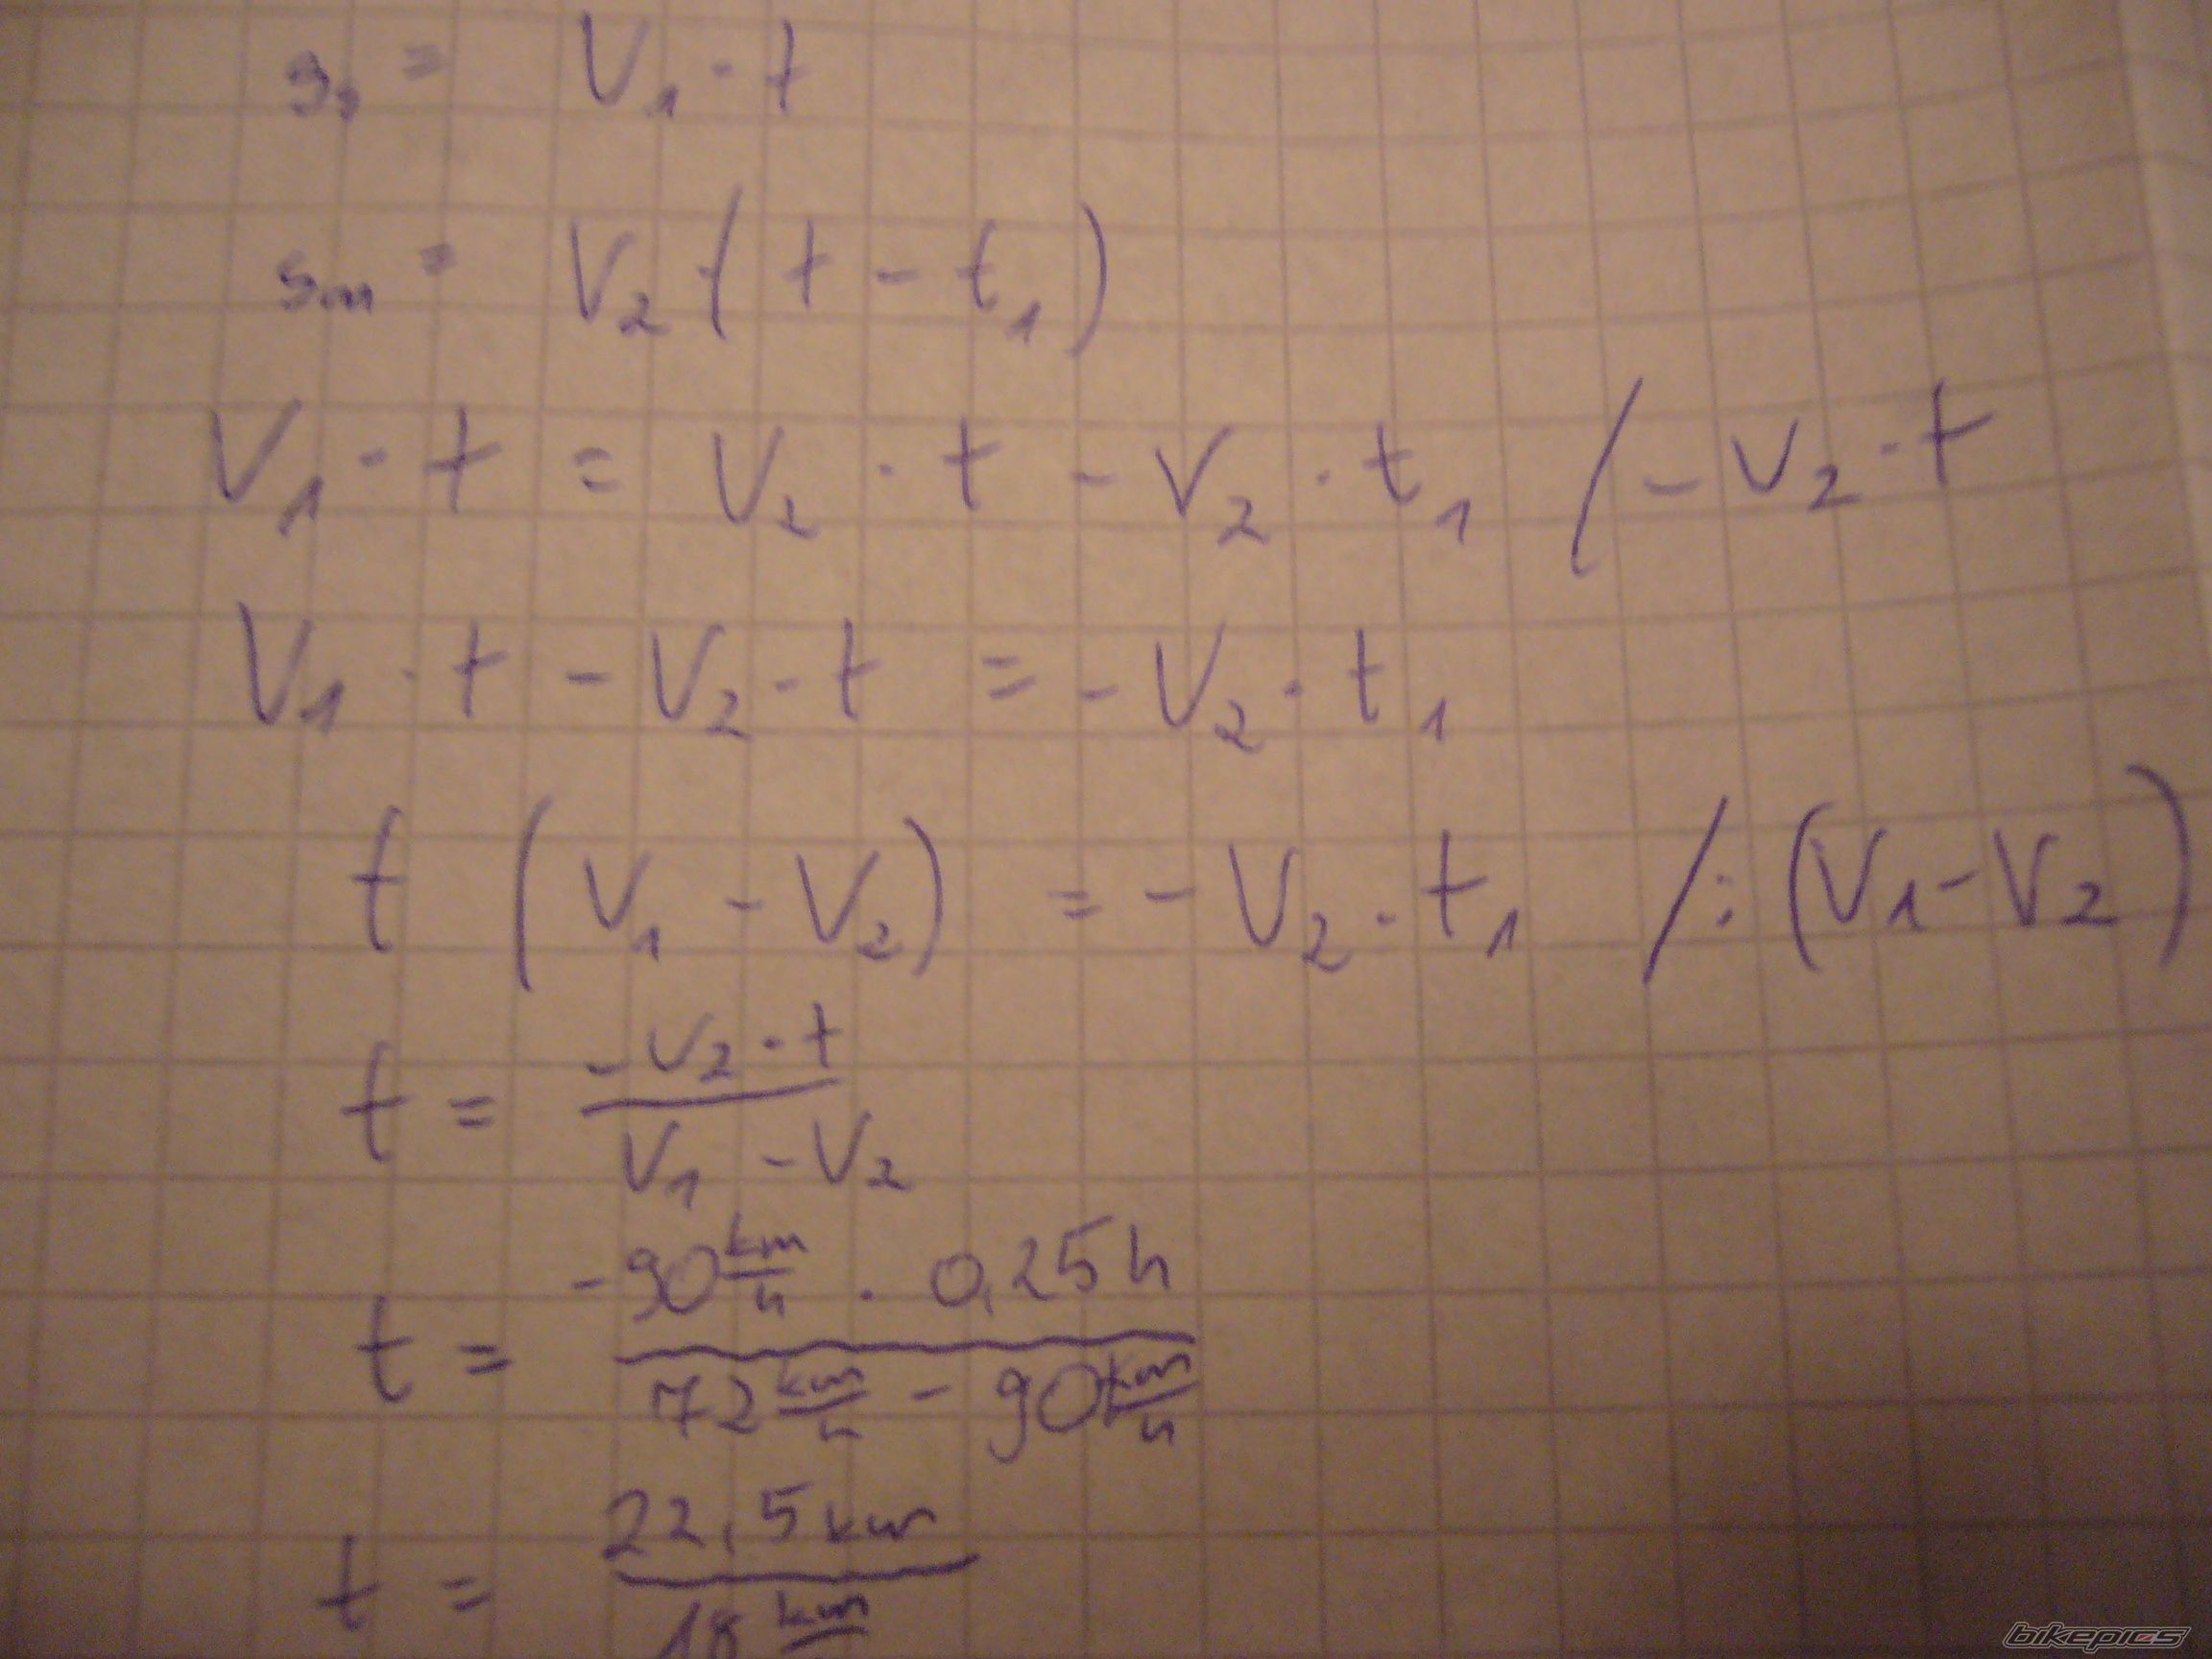 s = V₁ · t
sₘ = V₂ · (t - t₁)
V₁ · t = V₂ · t - V₂ · t₁ / - V₂ · t
V₁ · t - V₂ · t = - V₂ · t₁
t (V₁ - V₂) = - V₂ · t₁ / : (V₁ - V₂)
t = (-V₂ · t)/(V₁ - V₂)
t = (-90 km/h · 0,25 h)/(72 km/h - 90 km/h)
t = 22,5 km / 18 km
bikepics